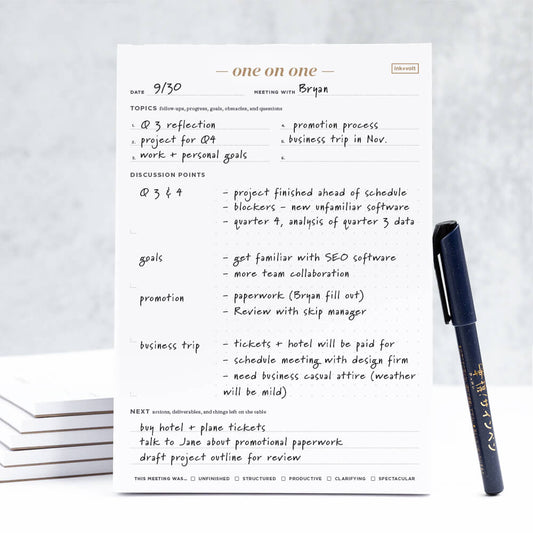 — one on one —
ink+volt
DATE 9/30 MEETING WITH Bryan
TOPICS follow-ups, progress, goals, obstacles, and questions
1. Q 3 reflection
2. project for Q4
3. work + personal goals
4. promotion process
5. business trip in Nov.
6.
DISCUSSION POINTS
Q 3 & 4
- project finished ahead of schedule
- blockers - new unfamiliar software
- quarter 4, analysis of quarter 3 data
goals
- get familiar with SEO software
- more team collaboration
promotion
- paperwork (Bryan fill out)
- Review with skip manager
business trip
- tickets + hotel will be paid for
- schedule meeting with design firm
- need business casual attire (weather
will be mild)
NEXT actions, deliverables, and things left on the table
buy hotel + plane tickets
talk to Jane about promotional paperwork
draft project outline for review
THIS MEETING WAS... □ UNFINISHED □ STRUCTURED □ PRODUCTIVE □ CLARIFYING □ SPECTACULAR